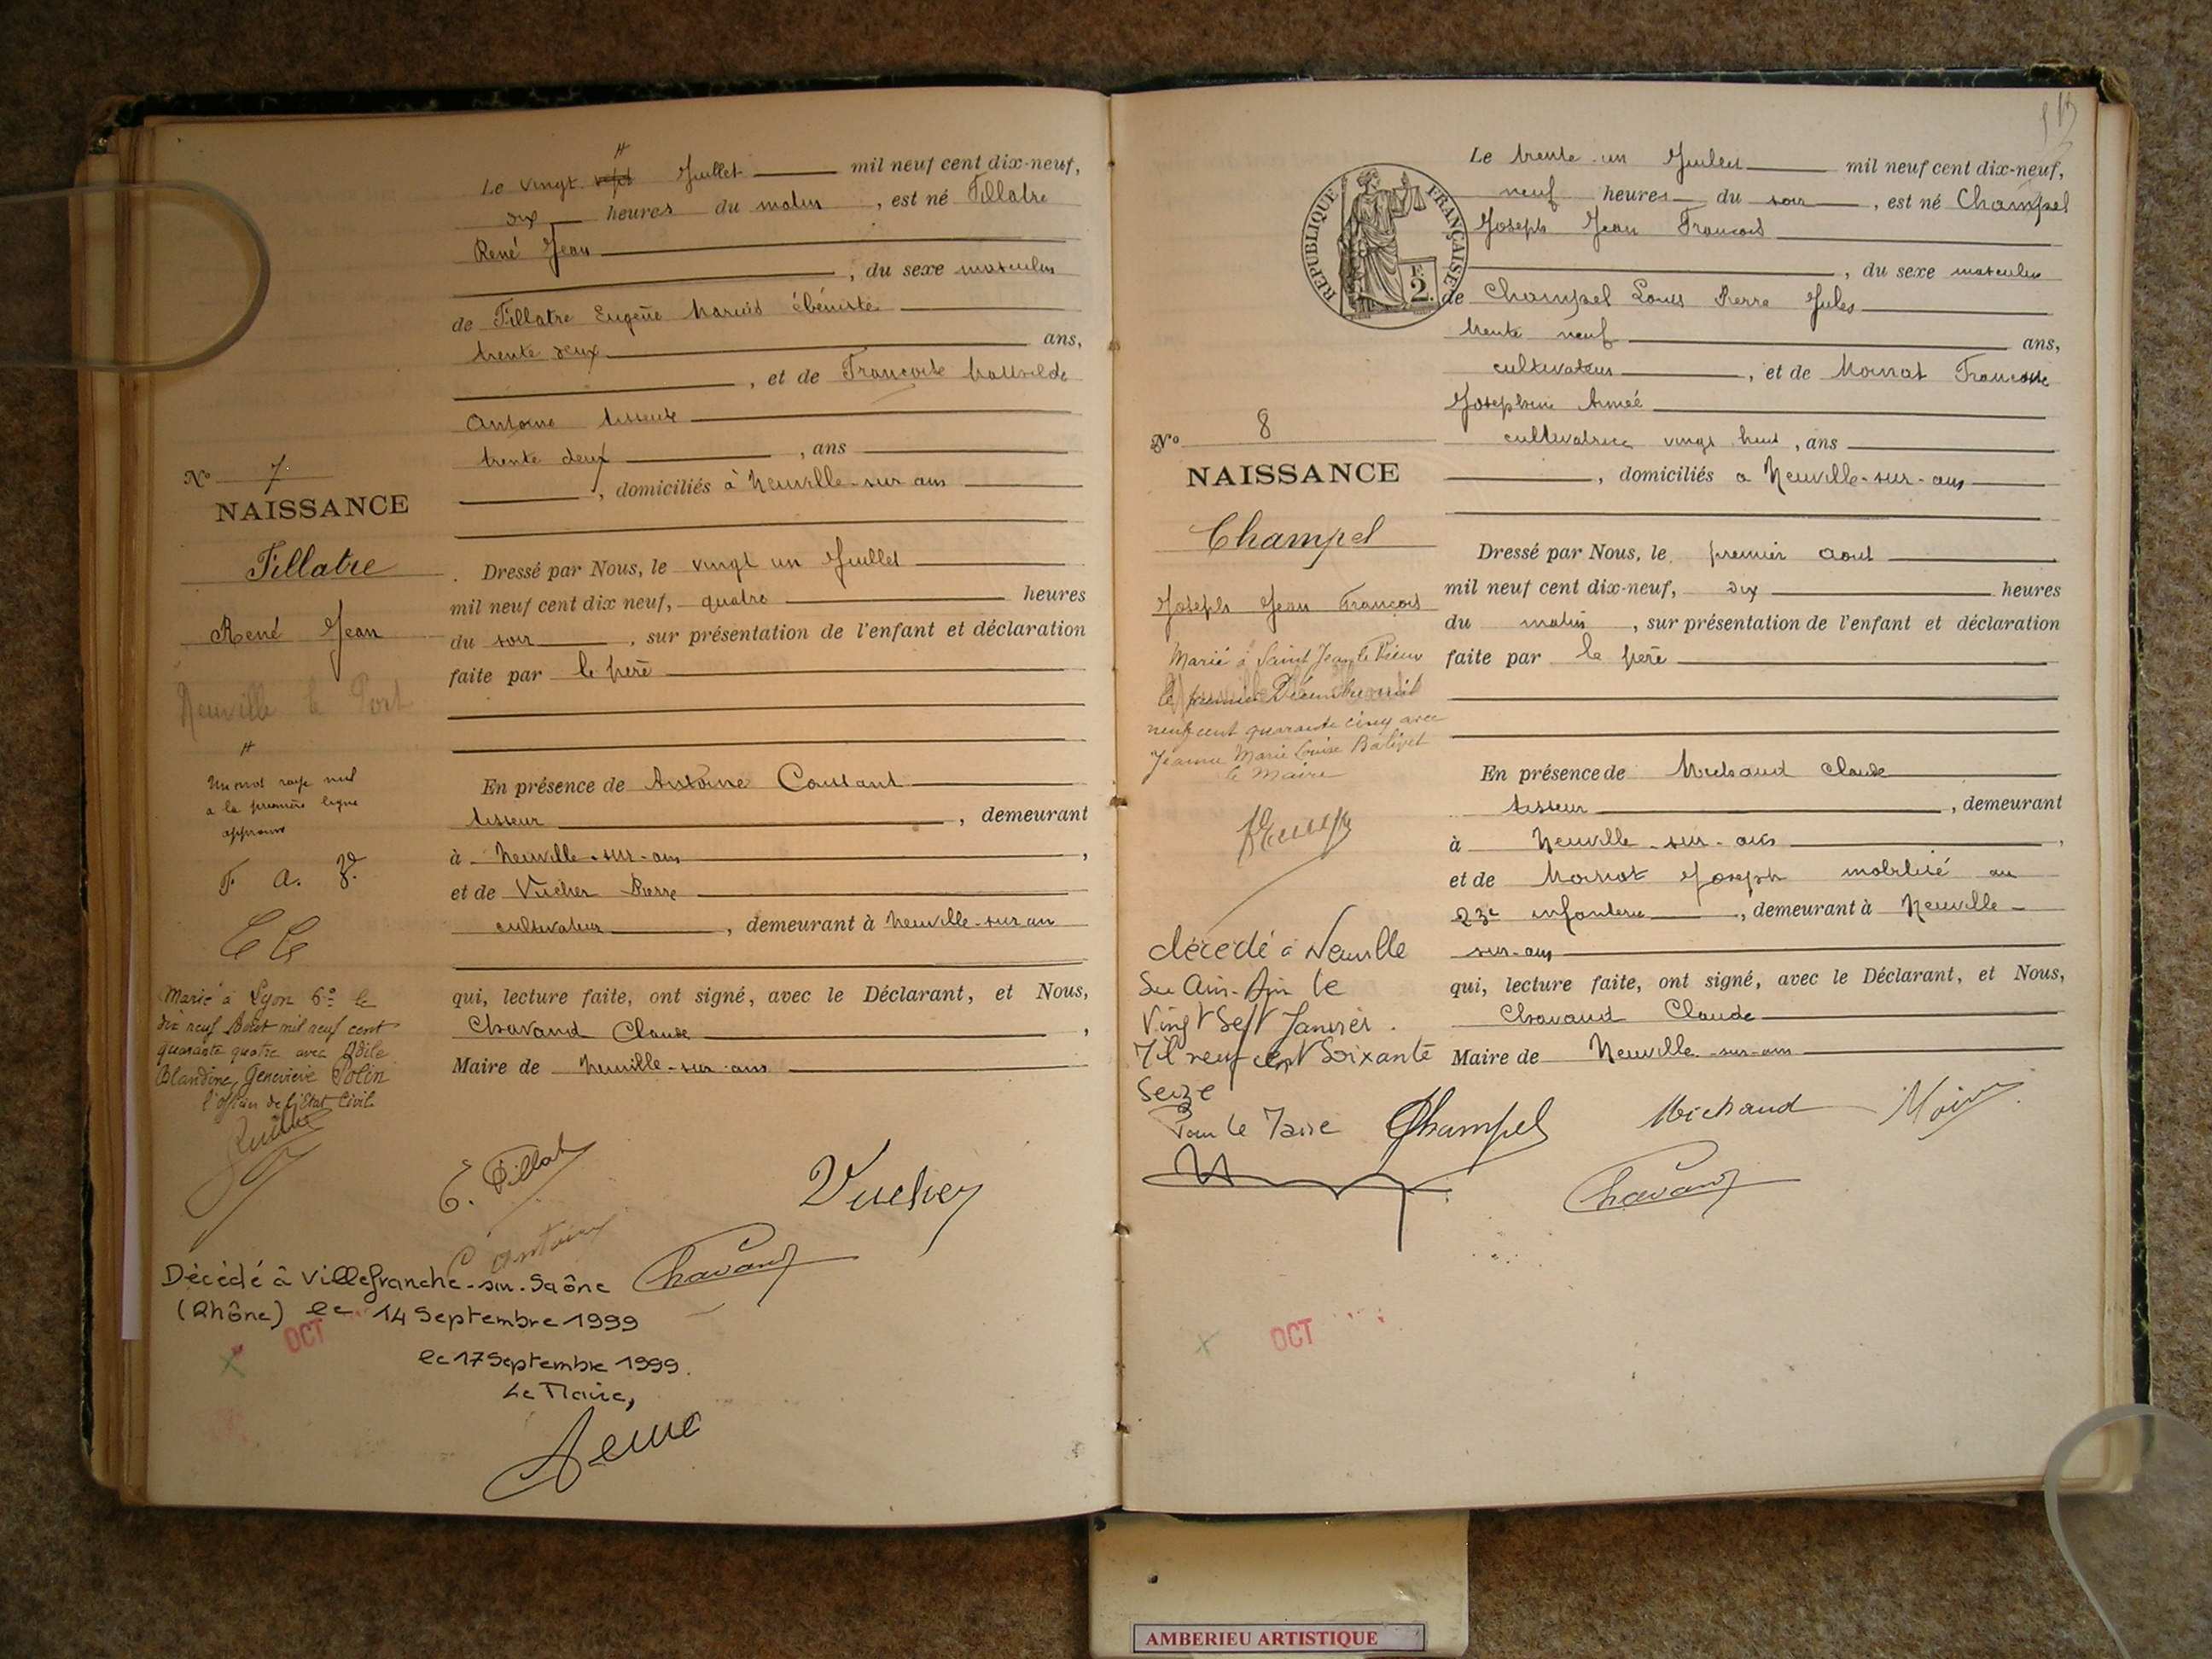 Le vingt Juillet mil neuf cent dix-neuf,
dix heures du matin, est né Fillatre
René Jean
, du sexe masculin
de Fillatre Eugène Marius ébéniste
trente deux ans,
, et de Francoise
Antoine tisseuse
trente deux, ans
, domiciliés à Neuville-sur-ain
No 7
NAISSANCE
Fillatre
René Jean
Neuville le Port
#
Un mot rayé nul
a la première ligne
approuvé
F. a.
Marié à Lyon 6e le
dix neuf Août mil neuf cent
quarante quatre avec Odile
Blandine, Geneviève Polin
l'Officier de l'Etat Civil
Dressé par Nous, le vingt un Juillet
mil neuf cent dix neuf, quatre heures
du soir, sur présentation de l'enfant et déclaration
faite par le père
En présence de Antoine Constant
tisseur, demeurant
à Neuville-sur-ain,
et de Vucher Pierre
cultivateur, demeurant à Neuville-sur ain
qui, lecture faite, ont signé, avec le Déclarant, et Nous,
Chavand Claude,
Maire de Neuville-sur-ain
E. Fillat
Vucher
C Antoine
Chavand
Décédé à Villefranche-sur-Saône
(Rhône) le 14 Septembre 1999
OCT
le 17 Septembre 1999.
Le Maire,
Le trente un Juillet mil neuf cent dix-neuf,
neuf heures du soir, est né Champel
Joseph Jean Francois
, du sexe masculin
RÉPUBLIQUE FRANÇAISE
F.
2.
de Champel Louis Pierre Jules
trente neuf ans,
cultivateur, et de Francoise
Josephine Aimée
cultivatrice vingt huit, ans
, domiciliés a Neuville-sur-ain
No 8
NAISSANCE
Champel
Joseph Jean François
Marié à Saint Jean le Vieux
le premier Décembre mil
neuf cent quarante cinq avec
Jeanne Marie Louise Balivet
le Maire
décédé à Neuville
Sur Ain-Ain le
Vingt Sept Janvier.
Mil neuf cent Soixante
Seize
Pour le Maire
Dressé par Nous, le premier aout
mil neuf cent dix-neuf, dix heures
du matin, sur présentation de l'enfant et déclaration
faite par le père
En présence de Michaud Claude
tisseur, demeurant
à Neuville-sur-ain,
et de Joseph mobilisé au
23e infanterie, demeurant à Neuville-
sur-ain
qui, lecture faite, ont signé, avec le Déclarant, et Nous,
Chavand Claude
Maire de Neuville-sur-ain
Champel
Michaud
Chavand
OCT
AMBERIEU ARTISTIQUE